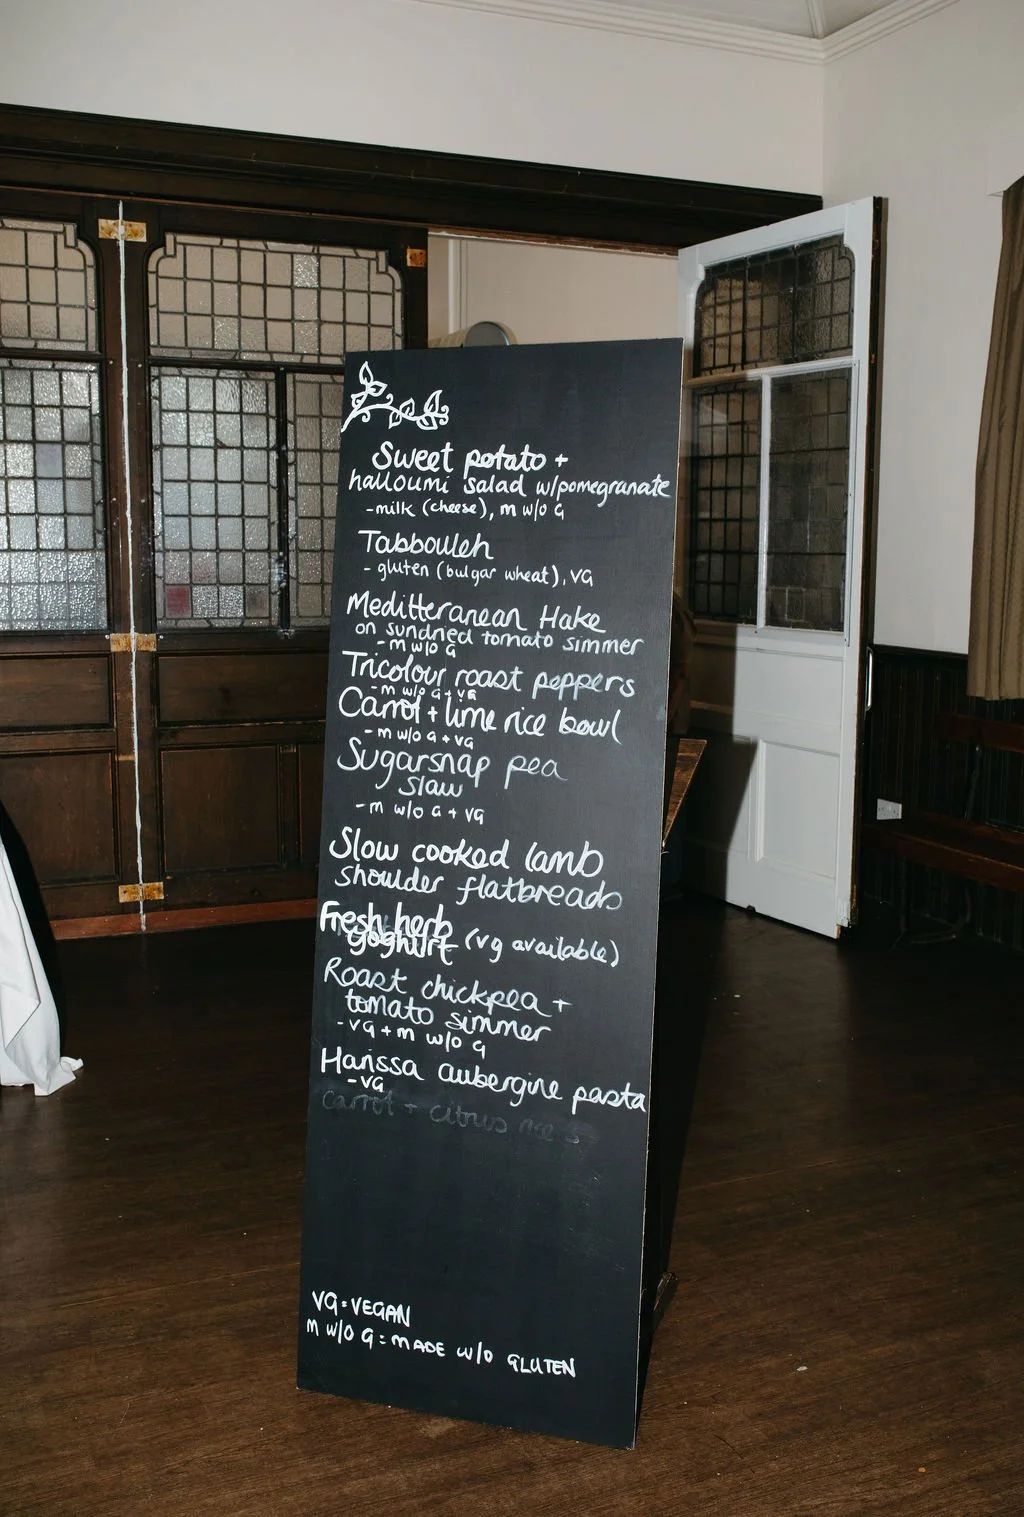 Sweet potato +
halloumi salad w/pomegranate
- milk (cheese), m w/o G
Tabbouleh
- gluten (bulgar wheat), VG
Meditteranean Hake
on sundried tomato simmer
- m w/o G
Tricolour roast peppers
- m w/o G + VG
Carrot + lime rice bowl
- m w/o G + VG
Sugarsnap pea
slaw
- m w/o G + VG
Slow cooked lamb
shoulder flatbreads
Fresh herb
yoghurt (vg available)
Roast chickpea +
tomato simmer
- VG + m w/o G
Harissa aubergine pasta
- VG
Carrot + citrus rice
VG = VEGAN
M W/O G = MADE W/O GLUTEN